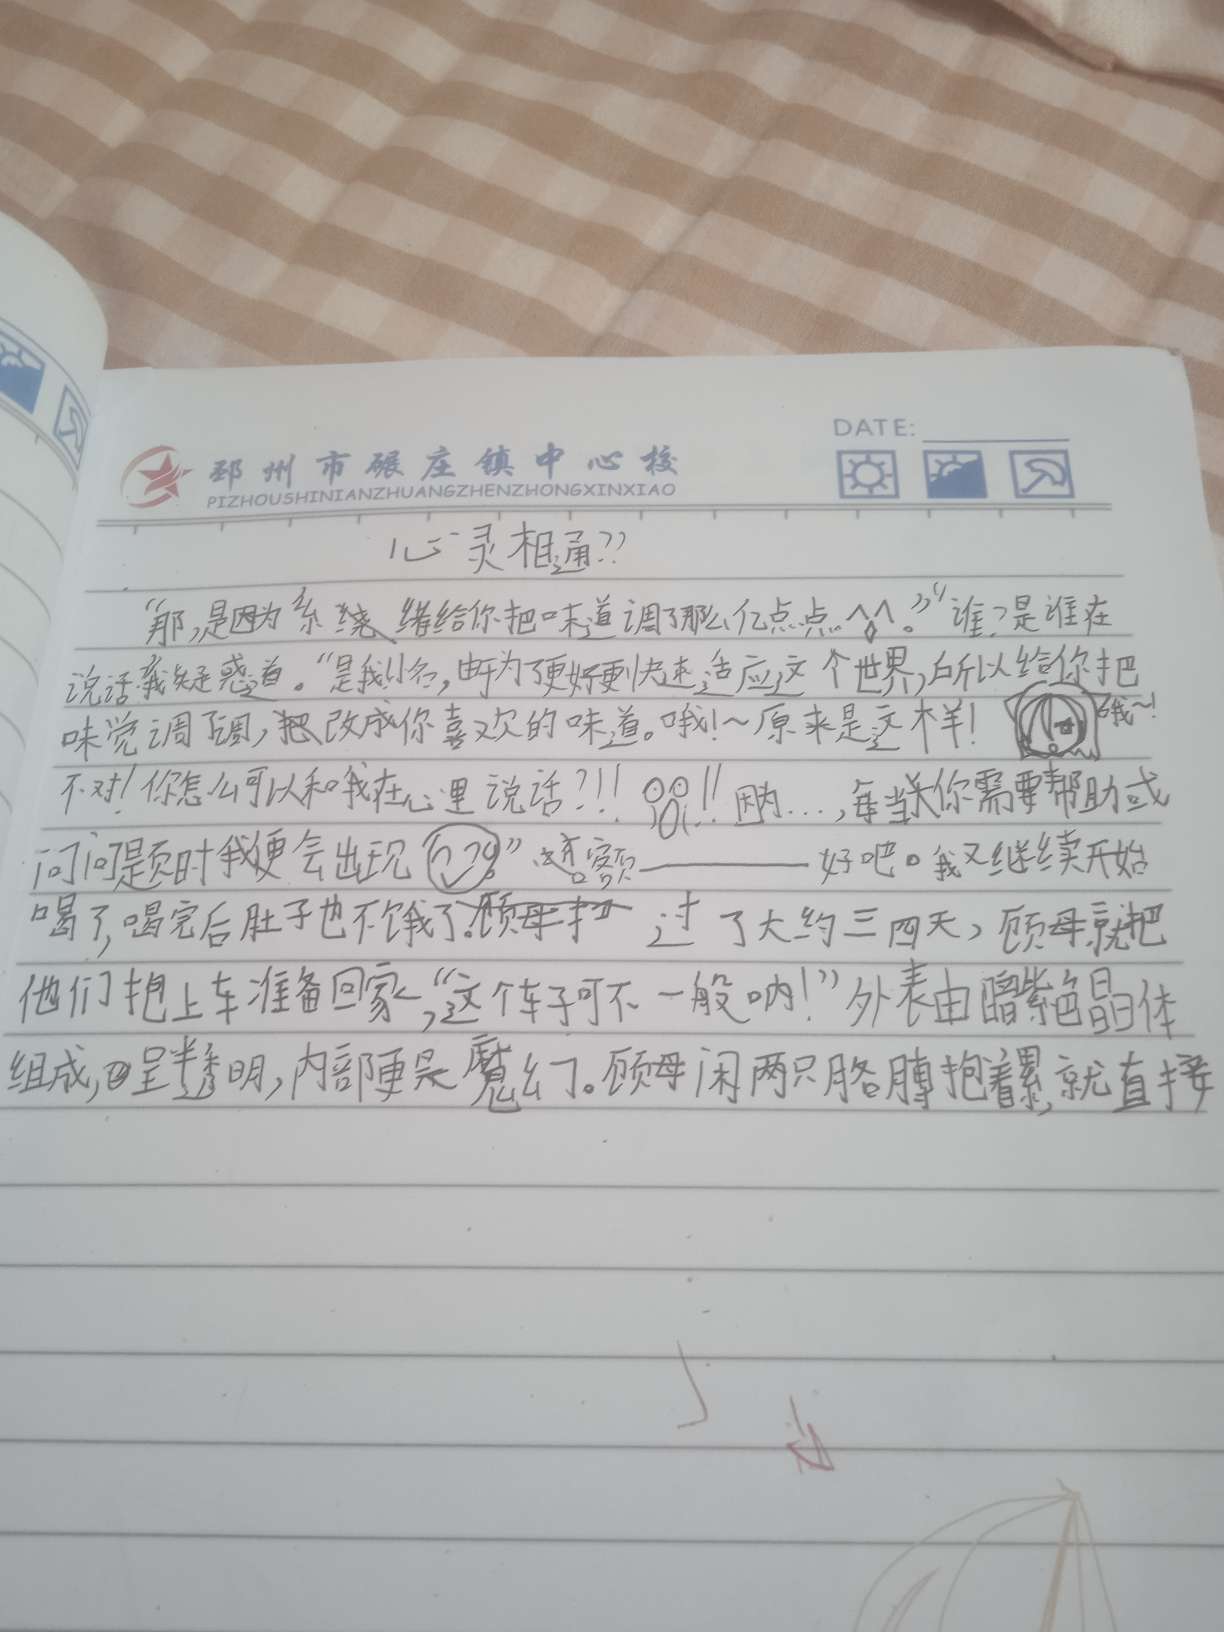 DATE:
邳州市碾庄镇中心校
PIZHOUSHINIANZHUANGZHENZHONGXINXIAO
心灵相通??
“那,是因为系绕绪给你把味道调了那么亿点点。^^。”“谁?是谁在
说话我疑惑道。“是我小名,由于为了更好更快速适应这个世界,所以给你把
味觉调了调,把改成你喜欢的味道。哦!~原来是这样!
哦~!
不对!你怎么可以和我在心里说话?!!!!因为...,每当你需要帮助或
问问题时我便会出现”好吧。我又继续开始
喝了,喝完后肚子也不饿了。顾母把过了大约三四天,顾母就把
他们抱上车准备回家,“这个车子可不一般呐!”外表由暗紫色晶体
组成,呈半透明,内部更是魔幻。顾母闲两只胳膊抱着累,就直接